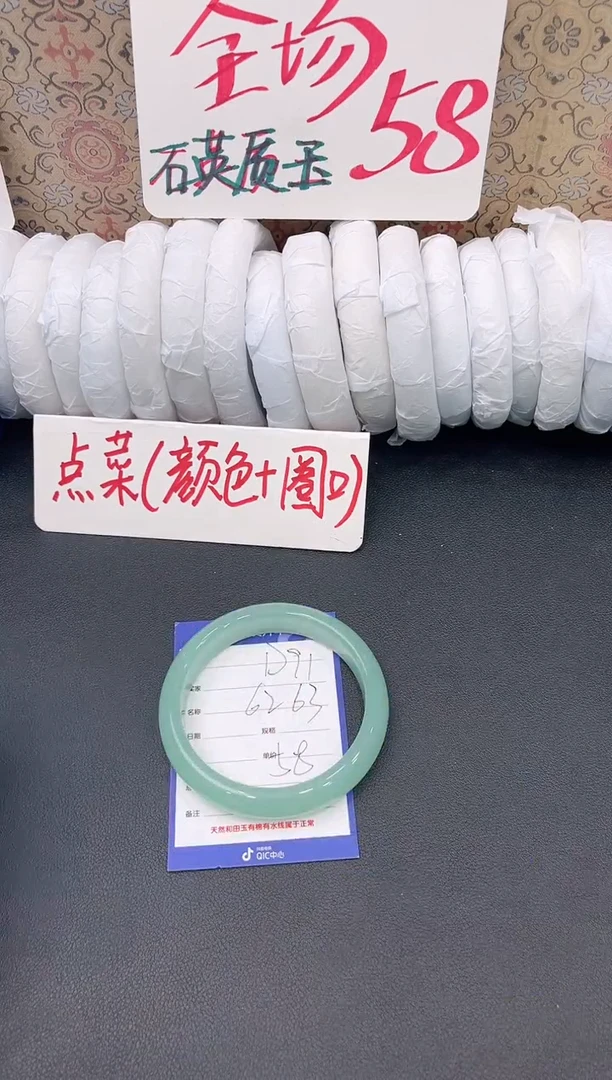 全场58
石英质玉
点菜(颜色+圈口)
D91
名称 6263
日期 规格
单价 58
备注
天然和田玉有棉有水线属于正常
QIC中心